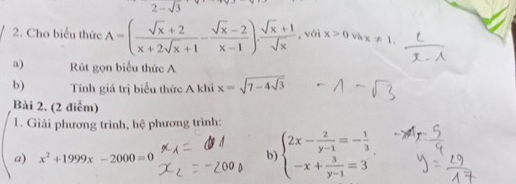 2-√3
2. Cho biểu thức A = ( (√x + 2)/(x + 2√x + 1) - (√x - 2)/(x - 1) ) . (√x + 1)/√x , với x > 0 và x ≠ 1. 2/(x-1)
a) Rút gọn biểu thức A
b) Tính giá trị biểu thức A khi x = √(7 - 4√3) -1-√3
Bài 2. (2 điểm)
1. Giải phương trình, hệ phương trình:
a) x² + 1999x - 2000 = 0 x₁ = 1
x₂ = -2000
b) { 2x - 2/(y-1) = -1/3
-x + 3/(y-1) = 3 .
5/4
y = 29/17